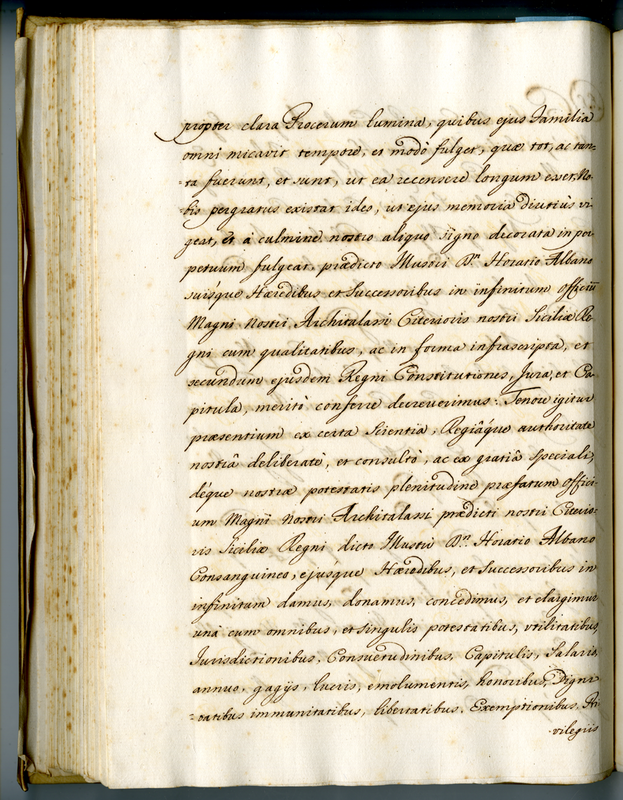 propter clara Procerum lumina, quibus ejus Familia
omni micavit tempore, et modò fulget, quæ tot, ac tan-
-ta fuerunt, et sunt, ut ea recensere longum esset. No-
-bis pergratus existat ides, ut ejus memoria diutiùs vi
geat, et à culmine nostro aliquo signo decorata in per
petuum fulgeat, prædicto Illustri D.n Horatio Albano
suisque Hæredibus et Successoribus in infinitum officiũ
Magni Nostri Architalassi Citerioris nostri Siciliæ Re
gni cum qualitatibus, ac in forma infrascripta, et
secundum ejusdem Regni Constitutiones, Jura, et Ca-
pitula, meritò conferre decreverimus: Tenore igitur
præsentium ex certa Scientia, Regiâque authoritate
nostrâ deliberatè, et consultò, ac ex gratiâ speciali,
déque nostræ potestatis plenitudine præfatum offici-
um Magni Nostri Architalassi prædicti nostri Citerio-
ris Siciliæ Regni dicto Illustri D.n Horatio Albano
Consanguineo, ejusque Hæredibus, et Successoribus in
infinitum damus, donamus, concedimus, et elargimur
unà cum omnibus, et singulis potestatibus, utilitatibus,
Jurisdictionibus, Consuetudinibus, Capitulis, Salariis,
annuo, gagijs, lucris, emolumentis, honoribus, Digni-
-tatibus immunitatibus, libertatibus, Exemptionibus, Pri-
vilegiis